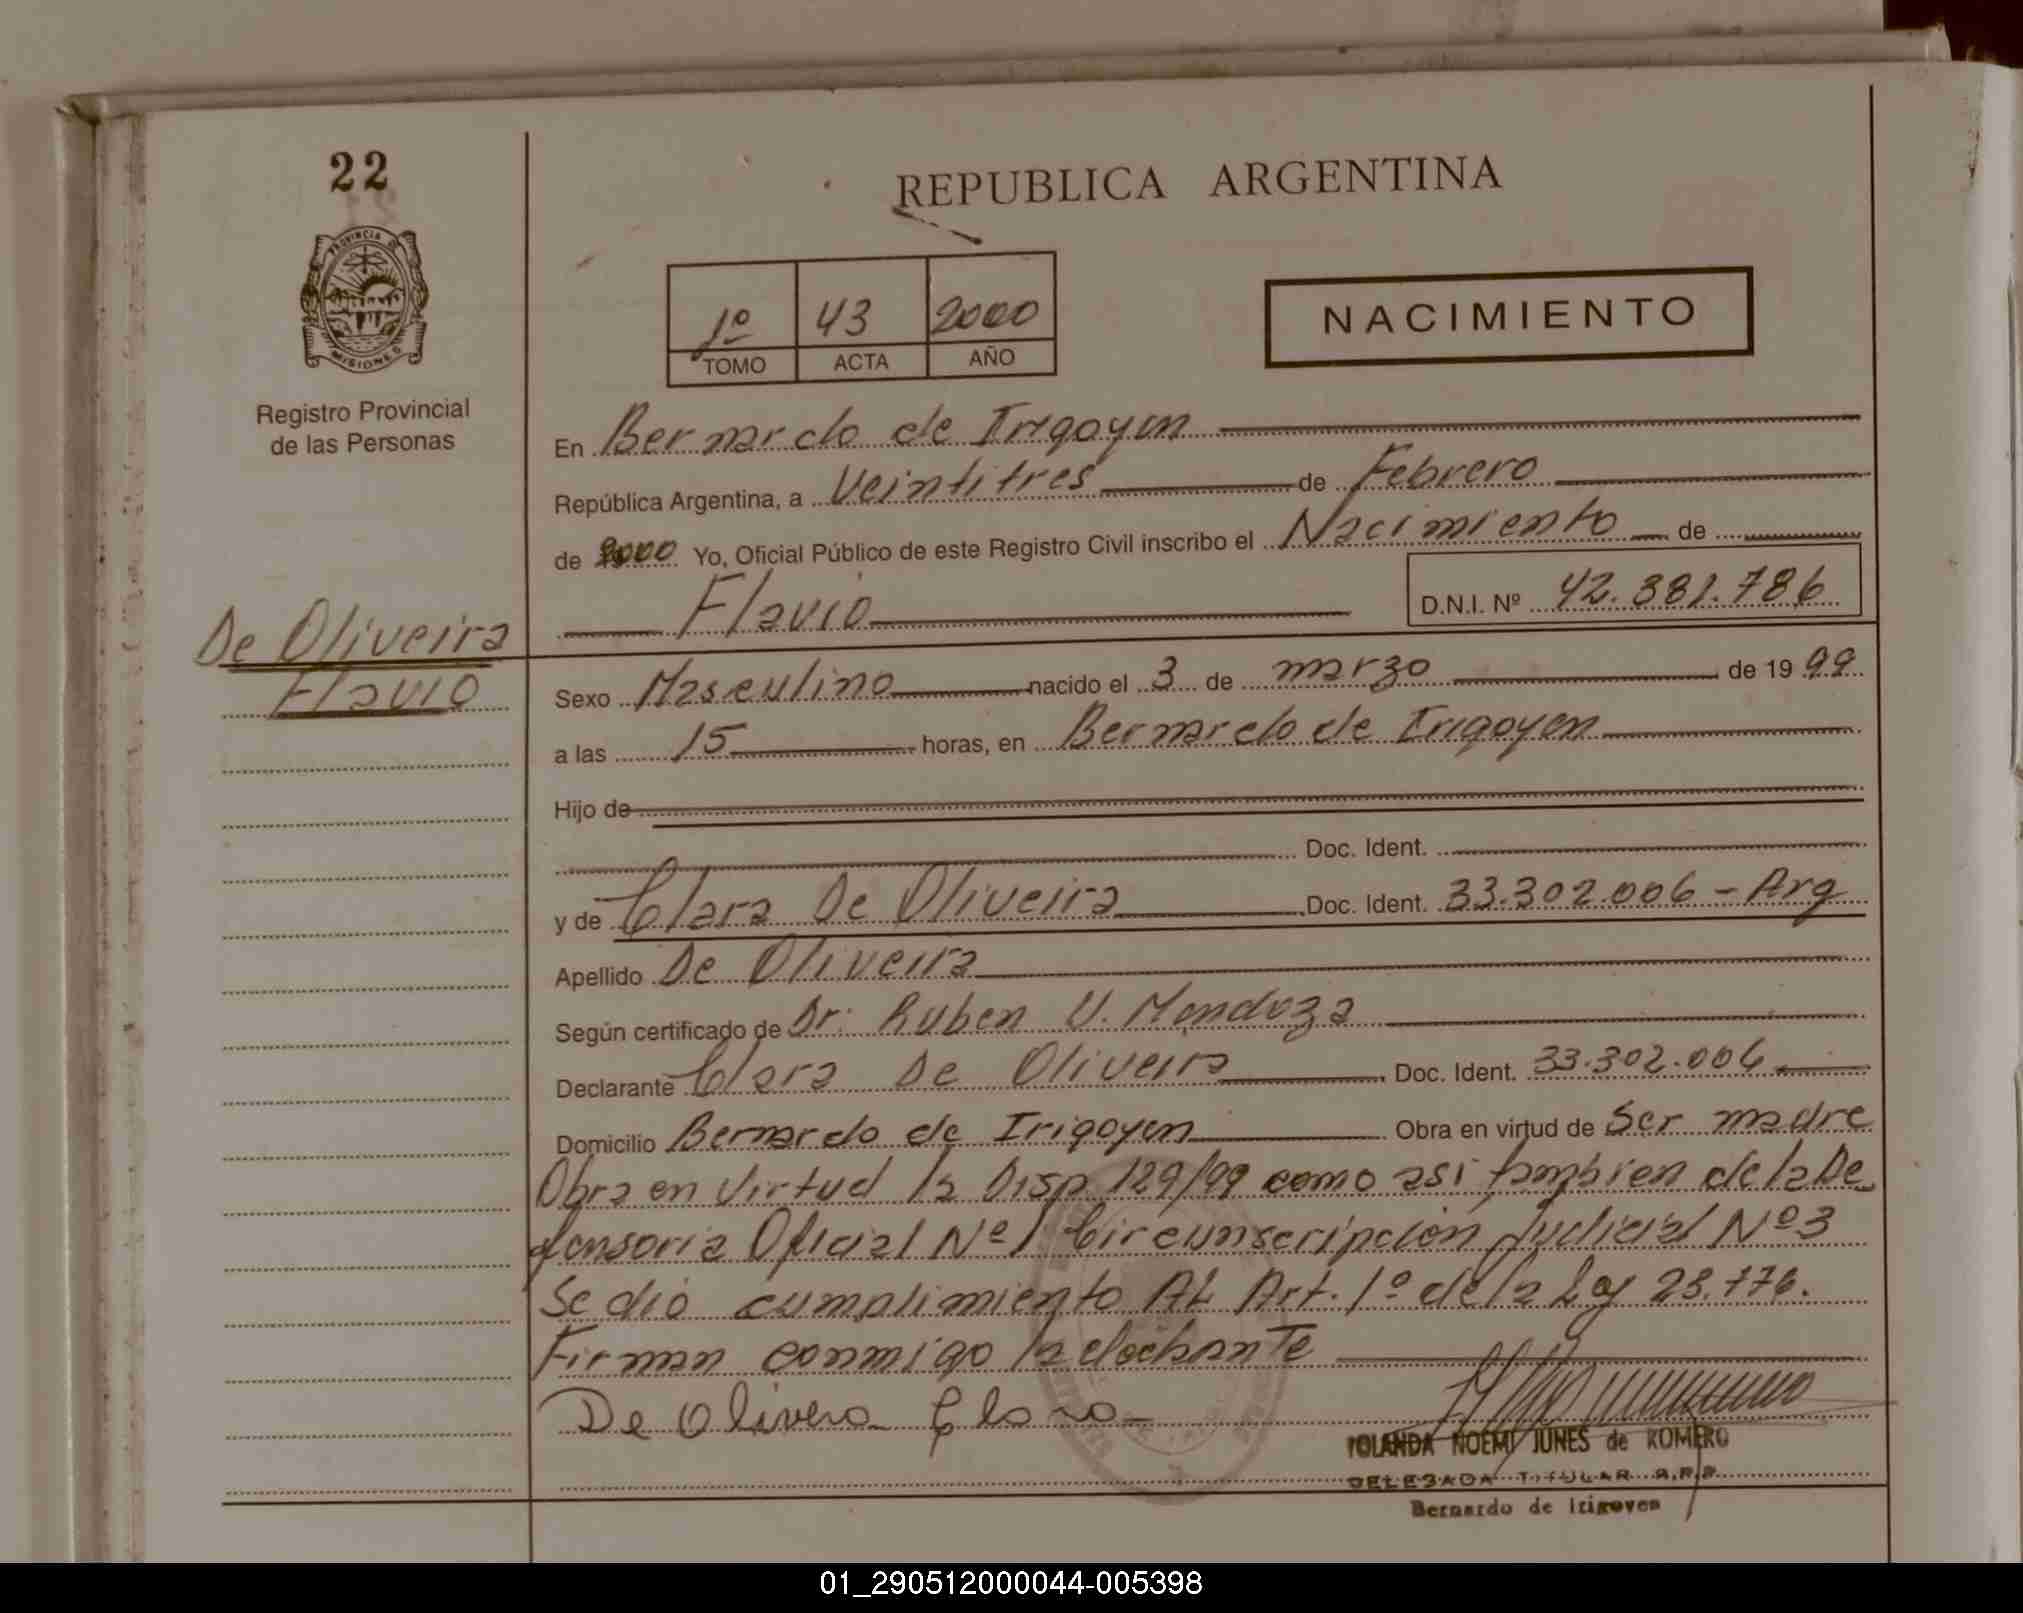 22
PROVINCIA DE
MISIONES
Registro Provincial
de las Personas
De Oliveira
Flavio
REPUBLICA ARGENTINA
1º 43 2000
TOMO ACTA AÑO
NACIMIENTO
En Bernardo de Irigoyen
República Argentina, a Veintitres de Febrero
de 2000 Yo, Oficial Público de este Registro Civil inscribo el Nacimiento de
Flavio D.N.I. Nº 42.381.786
Sexo Masculino nacido el 3 de marzo de 1999
a las 15 horas, en Bernardo de Irigoyen
Hijo de
Doc. Ident.
y de Clara De Oliveira Doc. Ident. 33.302.006 - Arg
Apellido De Oliveira
Según certificado de Dr. Ruben U. Mendoza
Declarante Clara De Oliveira Doc. Ident. 33.302.006
Domicilio Bernardo de Irigoyen Obra en virtud de Ser madre
Obra en virtud la Disp 129/99 como asi tambien de la De
fensoria Oficial Nº 1 Circunscripción Judicial Nº 3
Se dió cumplimiento AL Art. 1º de la Ley 23.776.
Firman conmigo la
De Olivera Clara
YOLANDA NOEMI JUNES de ROMERO
DELEGADA TITULAR R.P.P.
Bernardo de Irigoyen
01_290512000044-005398